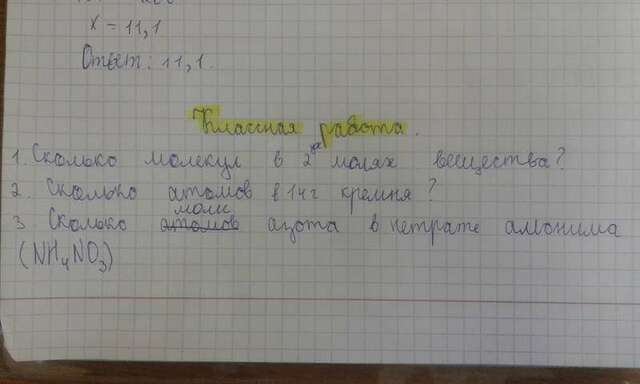 x = 11,1
Ответ: 11,1.
Классная работа.
1. Сколько молекул в 2х молях вещества?
2. Сколько атомов в 14 г кремня?
моли
3. Сколько атомов азота в нетрате амонима
(NH₄NO₃)